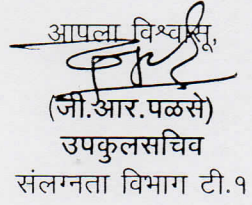 आपला विश्वासू,
(जी.आर.पळसे)
उपकुलसचिव
संलग्नता विभाग टी.१